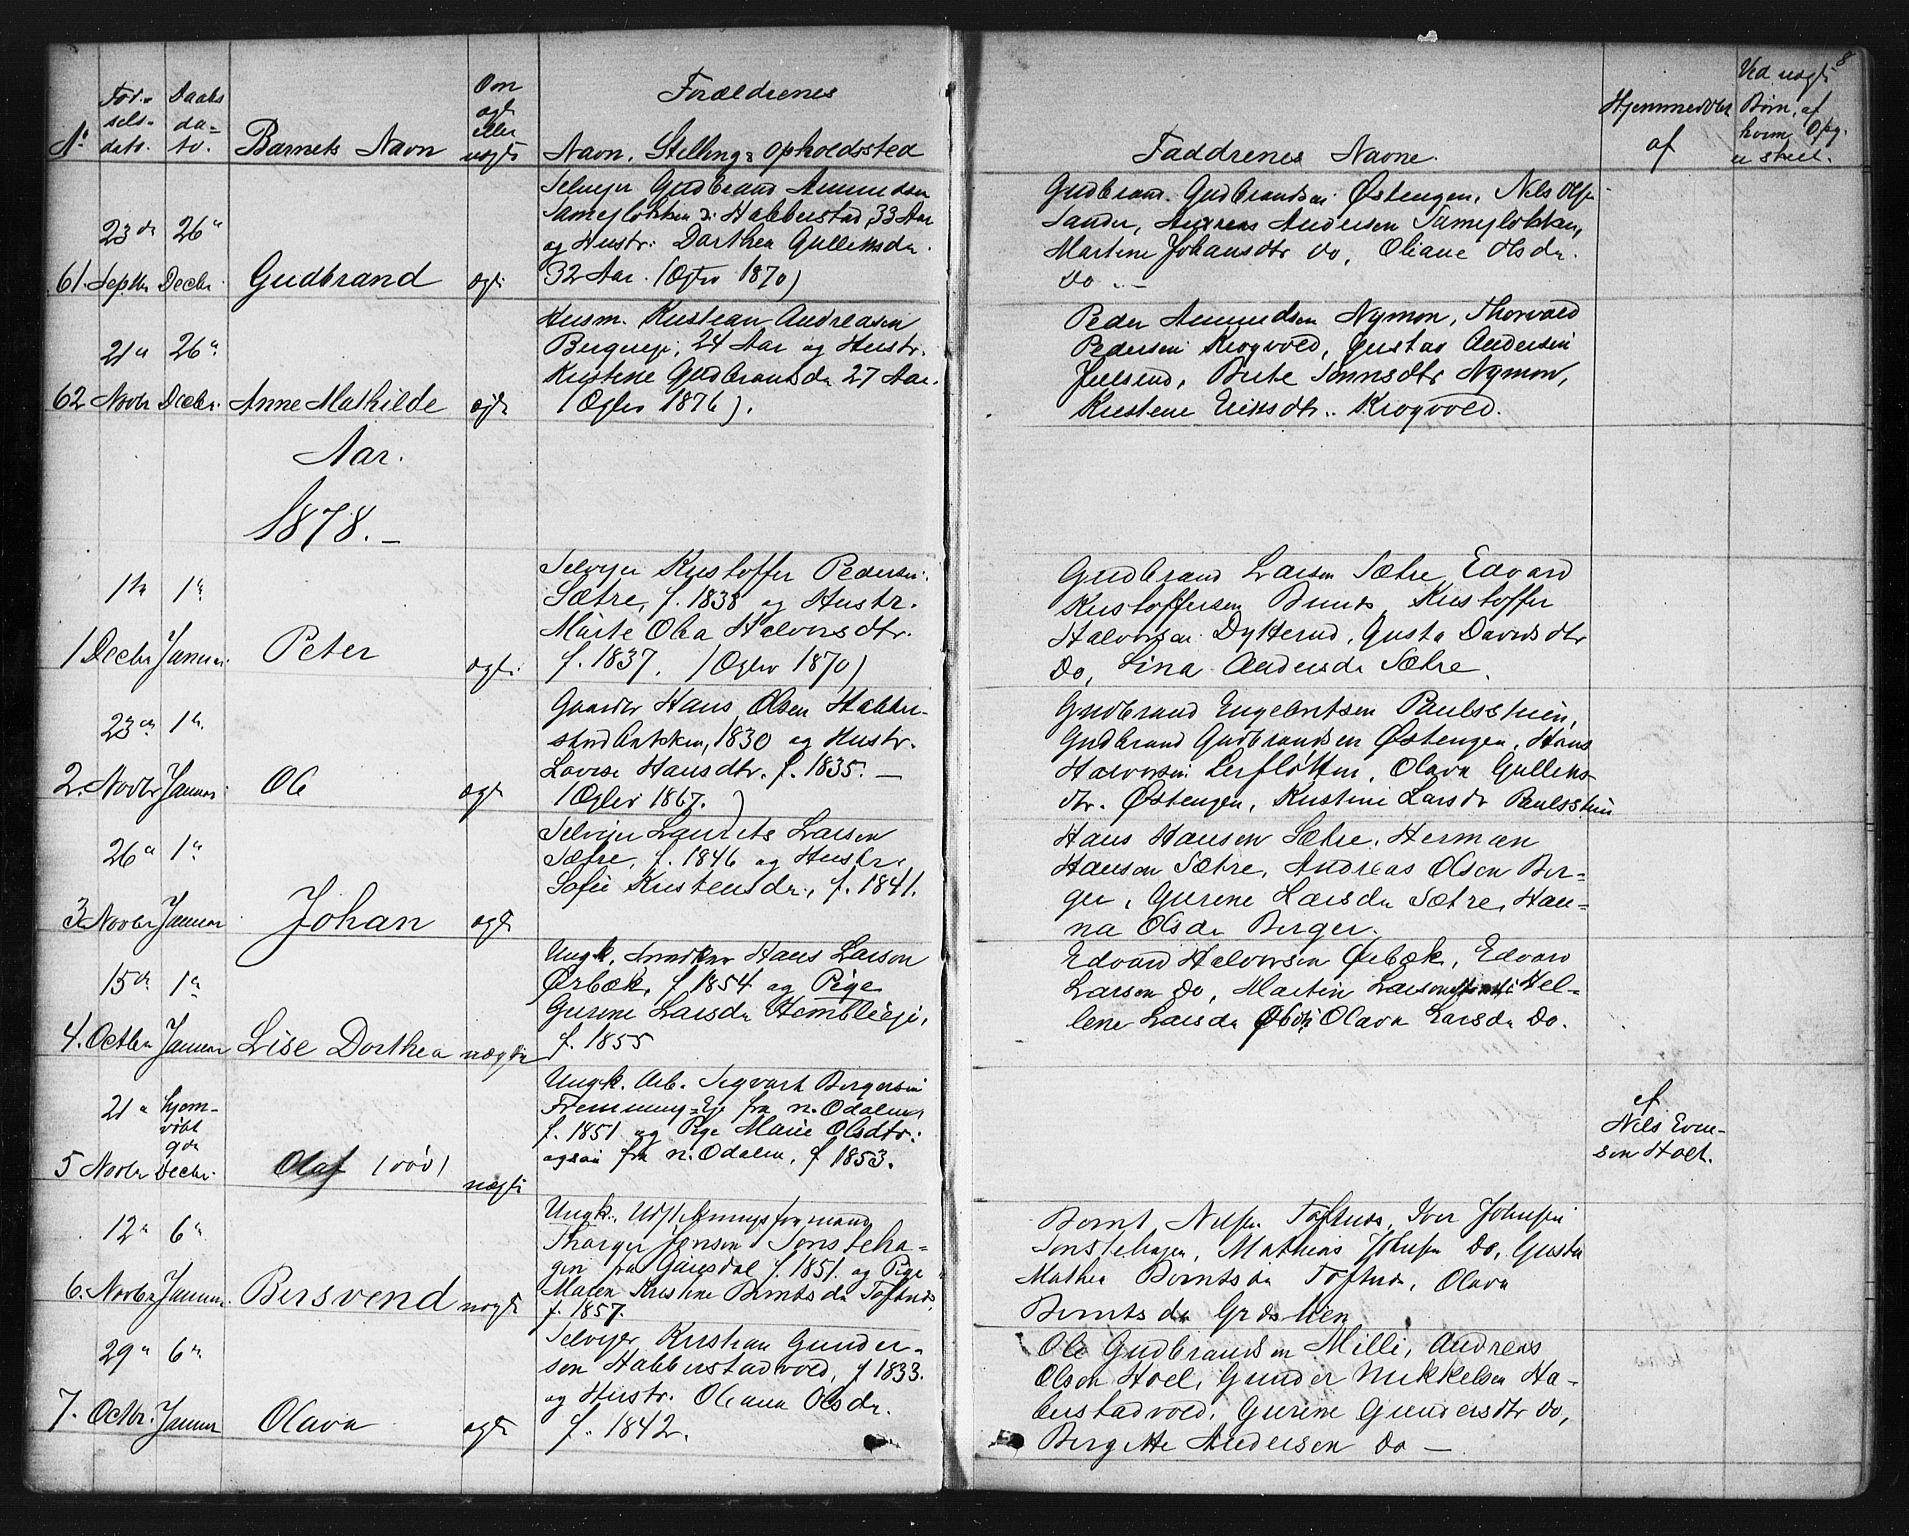 8
No
Fød-
sels-
dato.
Daabs
da-
to.
Barnets Navn
Om
ægt
eller
uægte
Forældrenes
Navn, Stilling & Opholdssted
Faddrenes Navne.
Hjemmedøbt
af
Ved uægte
Børn, af
hvem Opg.
er skeet.
61.
23de
Septbr
26de
Decbr.
Gudbrand
ægte
Selvejer Gudbrand Amundsen
Habberstad, 33 Aar
og Hustr: Dorthea Gulliksdr.
32 Aar. (Gift 1870)
Gudbrand Gudbrandsen Østengen, Nils Olsen
Sander, Andreas Andersen
Martine Johansdtr do, Oliane Olsdr.
do.—
62
21de
Novbr
26de
Decbr.
Anne Mathilde
ægte
Husm. Kristian Andreasen
Bergereje, 24 Aar og Hustr.
Kristine Gudbrandsdr 27 Aar.
(Ægtev 1876).
Peder Amundsen Nymon, Thorvald
Pedersen Krogvold, Gustav Andersen
Juelsrud, Birte Nymon,
Kristine Eriksdtr. Krogvold.
Aar.
1878.—
1
1te
Decbr
1te
Januar
Peter
ægte
Selvejer Kristoffer Pedersen
Sætre, f. 1838 og Hustr.
Marte Olea Halvorsdtr.
f. 1837. (Ægtev 1870)
Gudbrand Larsen Sætre, Edvard
Kristoffersen Bunds, Kristoffer
Halvorsen Dytterud, Gusta Davidsdtr
do, Lina Andersdr Sætre.
2.
23de
Novbr
1te
Januar
Ole
ægte
Gaardbr Hans Olsen Habber-
stadbakken, 1830 og Hustr.
Lovise Hansdtr. f. 1835.—
(Ægtev 1867.)
Gudbrand Engebretsen Paulsstuen,
Gudbrand Gudbrandsen Østengen, Hans
Halvorsen Lerfløtten, Olava Gulliks-
dtr. Østengen, Kristine Larsdr Paulsstuen
3.
26de
Novbr
1te
Januar
Johan
ægte
Selvejer Laurits Larsen
Sætre, f. 1846 og Hustr.
Sofie Kristensdr, f. 1841.
Hans Hansen Sætre, Herman
Hansen Sætre, Andreas Olsen Ber-
ger, Gurine Larsdr Sætre, Han-
na Olsdr Berger.
4.
15de
Octbr
1te
Januar
Lise Dorthea
uægte
Ungk. Snedker Hans Larsen
Ørbæk, f 1854 og Pige
Gurine Larsdr Hemblieje,
f. 1855
Edvard Halvorsen Ørbæk, Edvard
Larsen do, Martin Larsen Hel-
lene Larsdr Olava Larsdr do.
5
21de
Novbr
hjem-
døbt
9de
Decbr.
Olaf (død)
uægte
Ungk. Arb. Segvart Bergersen
Fremming-Eje fra n. Odalen,
f. 1851 og Pige Marie Olsdtr.
ogsaa fra n. Odalen, f 1853.
af
Nils Even-
sen Hoel.
6.
12te
Novbr
6te
Januar.
Bersvend
uægte
Ungk. Udstikningsformand
Thorger Jonsen Tonsteha-
gen fra Gausdal f. 1851. og Pige
Maren Kristine Berntsdr Toftnes,
f. 1857.
Bernt Nilsen Toftnes, Iver Johnsen
Tonstehagen, Mathias Johnsen do, Gusta
Mathea Berntsdr Toftnes, Olava
Berntsdr
7.
29de
Octbr.
6te
Januar
Olava
ægte
Selvejer Kristian Gunder-
sen Habberstadvold, f 1833.
og Hustr. Oleana Olsdr.
f. 1842.
Ole Gudbrandsen Milli, Andreas
Olsen Hoel, Gunder Mikkelsen Ha-
berstadvold, Gurine Gundersdtr do,
Bergitte Andersen do—